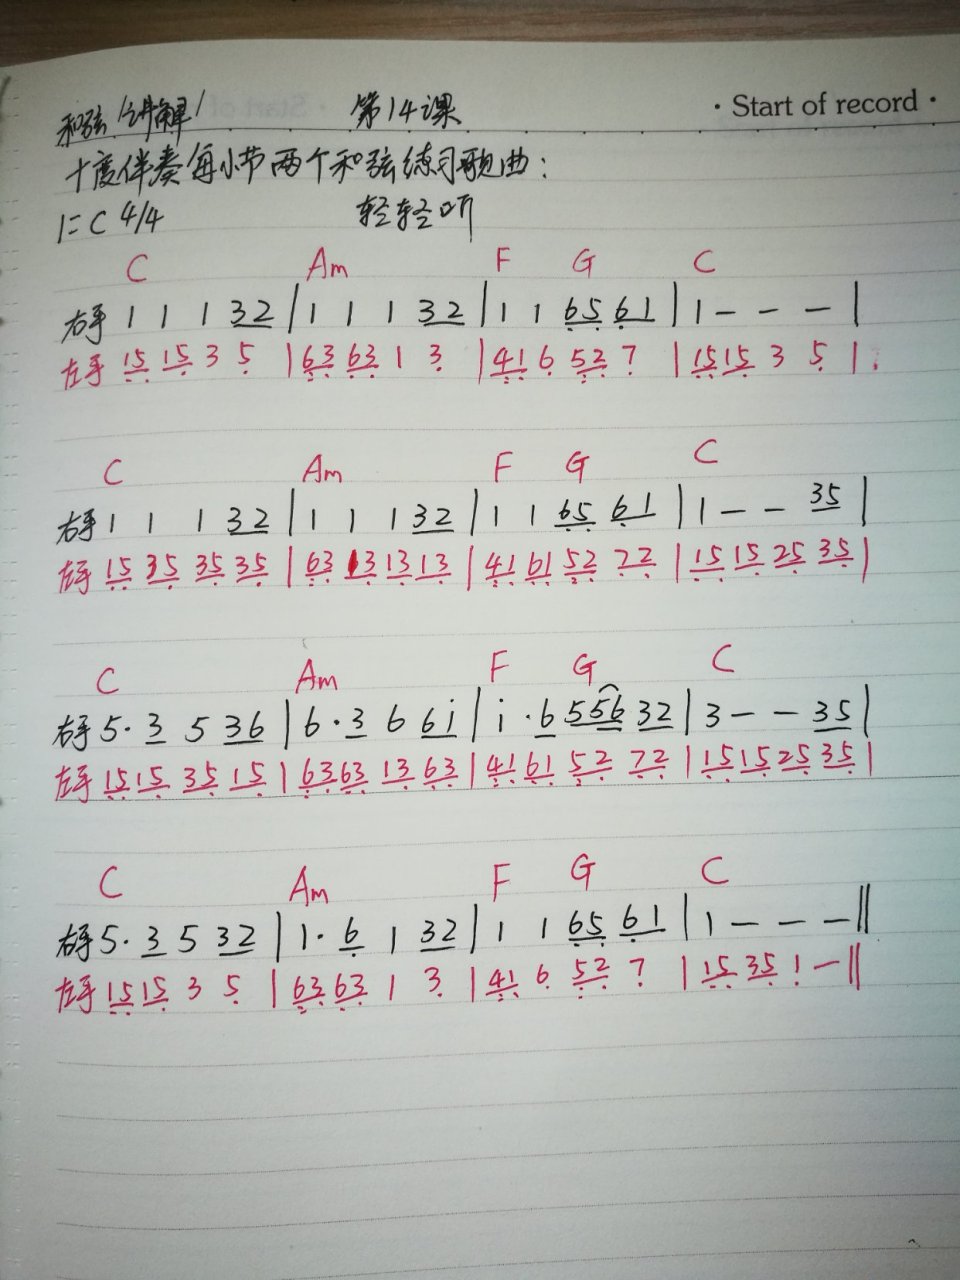 · Start of record ·
和弦讲解 第14课
十度伴奏每小节两个和弦练习歌曲:
1=C 4/4 轻轻听
C Am F G C
右手 1 1 1 32 | 1 1 1 32 | 1 1 65 61 | 1 - - - |
左手 15 15 3 5 | 63 63 1 3 | 41 6 52 7 | 15 15 3 5 |
C Am F G C
右手 1 1 1 32 | 1 1 1 32 | 1 1 65 61 | 1 - - 35 |
左手 15 35 35 35 | 63 13 13 13 | 41 61 52 72 | 15 15 25 35 |
C Am F G C
右手 5· 3 5 36 | 6· 3 6 6i | i· 6 556 32 | 3 - - 35 |
左手 15 15 35 15 | 63 63 13 63 | 41 61 52 72 | 15 15 25 35 |
C Am F G C
右手 5· 3 5 32 | 1· 6 1 32 | 1 1 65 61 | 1 - - - ||
左手 15 15 3 5 | 63 63 1 3 | 41 6 52 7 | 15 35 1 - ||